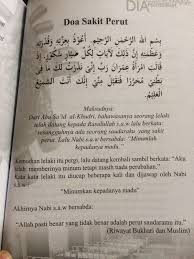 DIA
Doa Sakit Perut
بِسْمِ اللهِ الرَّحْمَنِ الرَّحِيْمِ. أَعُوْذُ بِعِزَّةِ اللهِ وَقُدْرَتِهِ
قَالَتِ امْرَأَةُ عِمْرَانَ رَبِّ إِنِّي نَذَرْتُ لَكَ مَا فِي
بَطْنِي مُحَرَّرًا فَتَقَبَّلْ مِنِّي إِنَّكَ أَنْتَ السَّمِيْعُ
الْعَلِيْمُ.
Maksudnya:
Dari Abu Sa'id al-Khudri, bahawasanya seorang lelaki
telah datang kepada Rasulullah s.a.w lalu berkata:
"sesungguhnya ada seorang saudaraku yang sakit
perut. Lalu Nabi s.a.w bersabda: "Minumlah
kepadanya madu."
Kemudian lelaki itu pergi, lalu datang kembali sambil berkata: "Aku
telah memberinya minum tetapi masih tiada perubahan,"
Kata lelaki itu diucap beberapa kali dan dijawap oleh Nabi
s.a.w bersabda:
"Minumkan kepadanya madu"
Akhirnya Nabi s.a.w bersabda:
"Allah pasti benar yang tidak benar adalah perut saudaramu itu."
(Riwayat Bukhari dan Muslim)